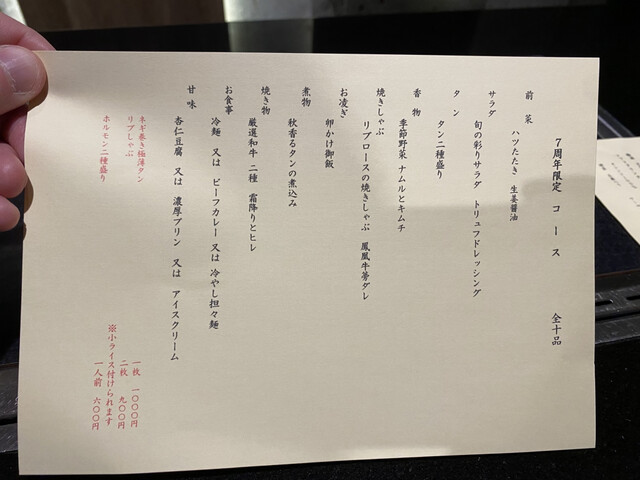 ７周年限定　コース　　全十品
前　菜
ハツたたき　生姜醤油
サラダ
旬の彩りサラダ　トリュフドレッシング
タ　ン
タン二種盛り
香　物
季節野菜　ナムルとキムチ
焼きしゃぶ
リブロースの焼きしゃぶ　鳳凰牛蒡ダレ
お凌ぎ
卵かけ御飯
煮物
秋香るタンの煮込み
焼き物
厳選和牛　二種　霜降りとヒレ
お食事
冷麺　又は　ビーフカレー　又は　冷やし担々麺
甘　味
杏仁豆腐　又は　濃厚プリン　又は　アイスクリーム
ネギ巻き極薄タン　　一枚　一〇〇〇円
リブしゃぶ　　二枚　九〇〇円
※小ライス付けられます
ホルモン二種盛り　　一人前　六〇〇円